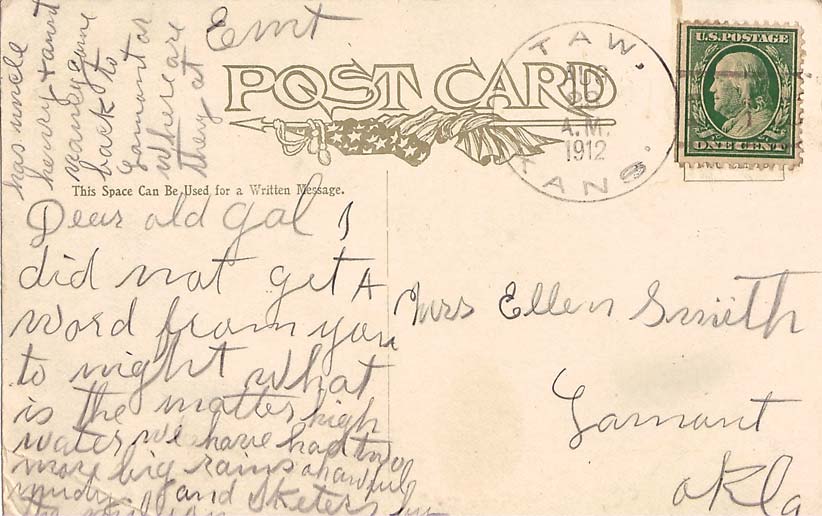 has uncle
henry + aunt
nancy gone
back to
Lamont or
where are
they at
Emt
POST CARD
TAW, KANS.
AUG
A.M.
1912
U.S. POSTAGE
ONE CENT
This Space Can Be Used for a Written Message.
Dear old gal I
did not get A
word from you
to night what
is the matter high
water we have had two
more big rains
mudy and sketers
Mrs Ellen Smith
Lamont
Okla